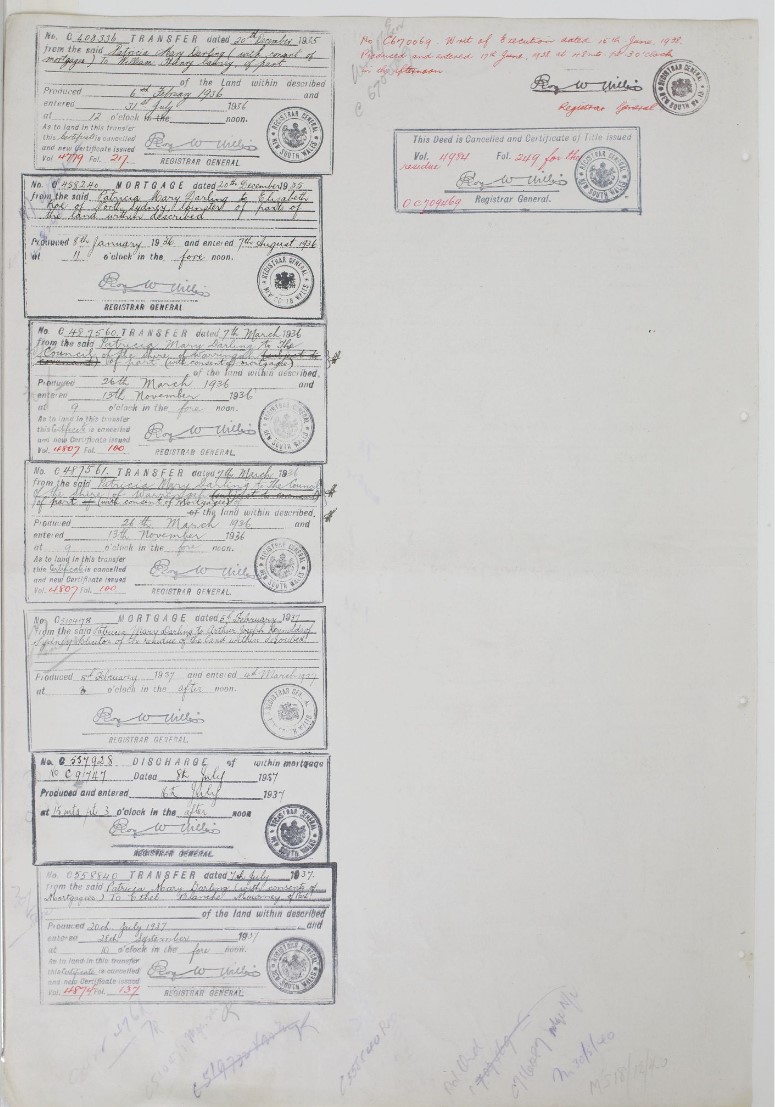 No. C 408336 TRANSFER dated 20th December 1935
from the said Patricia Mary Darling (with consent of
mortgagee) To William Henry of part
of the Land within described
Produced 6th February 1936 and
entered 31st July 1936
at 12 o'clock in the noon.
As to land in this transfer
this Certificate is cancelled
and new Certificate issued
Vol 4779 Fol. 217
REGISTRAR GENERAL
No. C 458240 MORTGAGE dated 20th December 1935
from the said Patricia Mary Darling to Elizabeth
of North Sydney Spinster of parts of
the land within described
Produced 8th January 1936 and entered 7th August 1936
at 11 o'clock in the fore noon.
Roy W Willis
REGISTRAR GENERAL
No. C 487560 TRANSFER dated 7th March 1936
from the said Patricia Mary Darling to The
Council of the Shire of Warringah (subject to
covenants) of part (with consent of mortgagee)
of the land within described.
Produced 26th March 1936 and
entered 13th November 1936
at 9 o'clock in the fore noon.
As to land in this transfer
this Certificate is cancelled
and new Certificate issued
Vol. 4807 Fol. 100
Roy W Willis
REGISTRAR GENERAL.
No. C 487561. TRANSFER dated 7th March 1936
from the said Patricia Mary Darling to the Council
of the Shire of Warringah (subject to covenants)
of part of (with consent of Mortgagee)
of the land within described.
Produced 26th March 1936 and
entered 13th November 1936
at 9 o'clock in the fore noon.
As to land in this transfer
this Certificate is cancelled
and new Certificate issued
Vol. 4807 Fol. 100
Roy W Willis
REGISTRAR GENERAL
No. C510478 MORTGAGE dated 5th February 1937
from the said Patricia Mary Darling to Arthur Joseph Reynolds of
Sydney Solicitor of the residue of the land within described
Produced 8th February 1937 and entered 4th March 1937
at o'clock in the after noon.
Roy W Willis
REGISTRAR GENERAL.
No. C 557928 DISCHARGE of within mortgage
No C91747 Dated 8th July 1937
Produced and entered July 1937
at 15 mts pt 3 o'clock in the after noon
Roy W Willis
REGISTRAR GENERAL
No. C558840 TRANSFER dated 7th July 1937.
from the said Patricia Mary Darling (with consents of
Mortgagees) To Ethel Blanche of part
of the land within described
Produced 20th July 1937 and
entered 28th September 1937
at 10 o'clock in the fore noon.
As to land in this transfer
this Certificate is cancelled
and new Certificate issued
Vol. 4874 Fol. 137
Roy W Willis
REGISTRAR GENERAL
No. C670069. Writ of Execution dated 15th June, 1938.
Produced and entered 17th June, 1938 at 48 mts. pt 3 o'clock
in the afternoon.
Roy W Willis
Registrar General
This Deed is Cancelled and Certificate of Title issued
Vol. 4984 Fol. 249 for the
residue
Roy W Willis
DC709469 Registrar General.